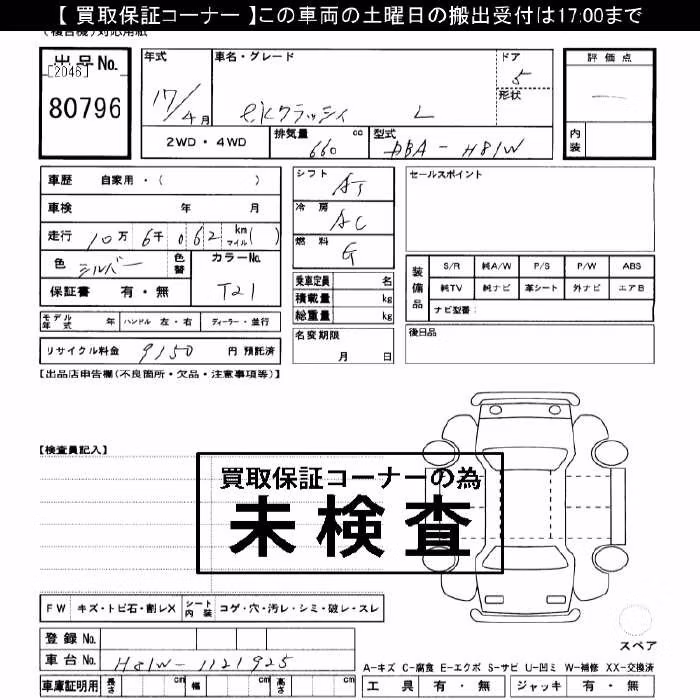 【 買取保証コーナー 】この車両の土曜日の搬出受付は17:00まで
(複合機)対応用紙
出品No.
[2046]
80796
年式
17/4月
車名・グレード
ekクラッシィ L
ドア
5
形状
評価点
—
内装
2WD・4WD
排気量 cc
660
型式
DBA-H81W
車歴 自家用・( )
車検 年 月
走行 10万 6千 062 km マイル( )
色 シルバー 色替
カラーNo.
T21
保証書 有・無
モデル年式 年 ハンドル 左・右 ディーラー・並行
リサイクル料金 9150 円 預託済
シフト AT
冷房 AC
燃料 G
乗車定員 名
積載量 kg
総重量 kg
名変期限
月 日
セールスポイント
装備品
S/R 純A/W P/S P/W ABS
純TV 純ナビ 革シート 外ナビ エアB
ナビ型番:
後日品
【出品店申告欄(不良箇所・欠品・注意事項等)】
【検査員記入】
買取保証コーナーの為
未検査
FW キズ・トビ石・割レX シート内装 コゲ・穴・汚レ・シミ・破レ・スレ
登録No.
車台No. H81W-1121925
車庫証明用 長さ cm 幅 cm 高さ cm
スペア
A-キズ C-腐食 E-エクボ S-サビ U-凹ミ W-補修 XX-交換済
工具 有・無 ジャッキ 有・無